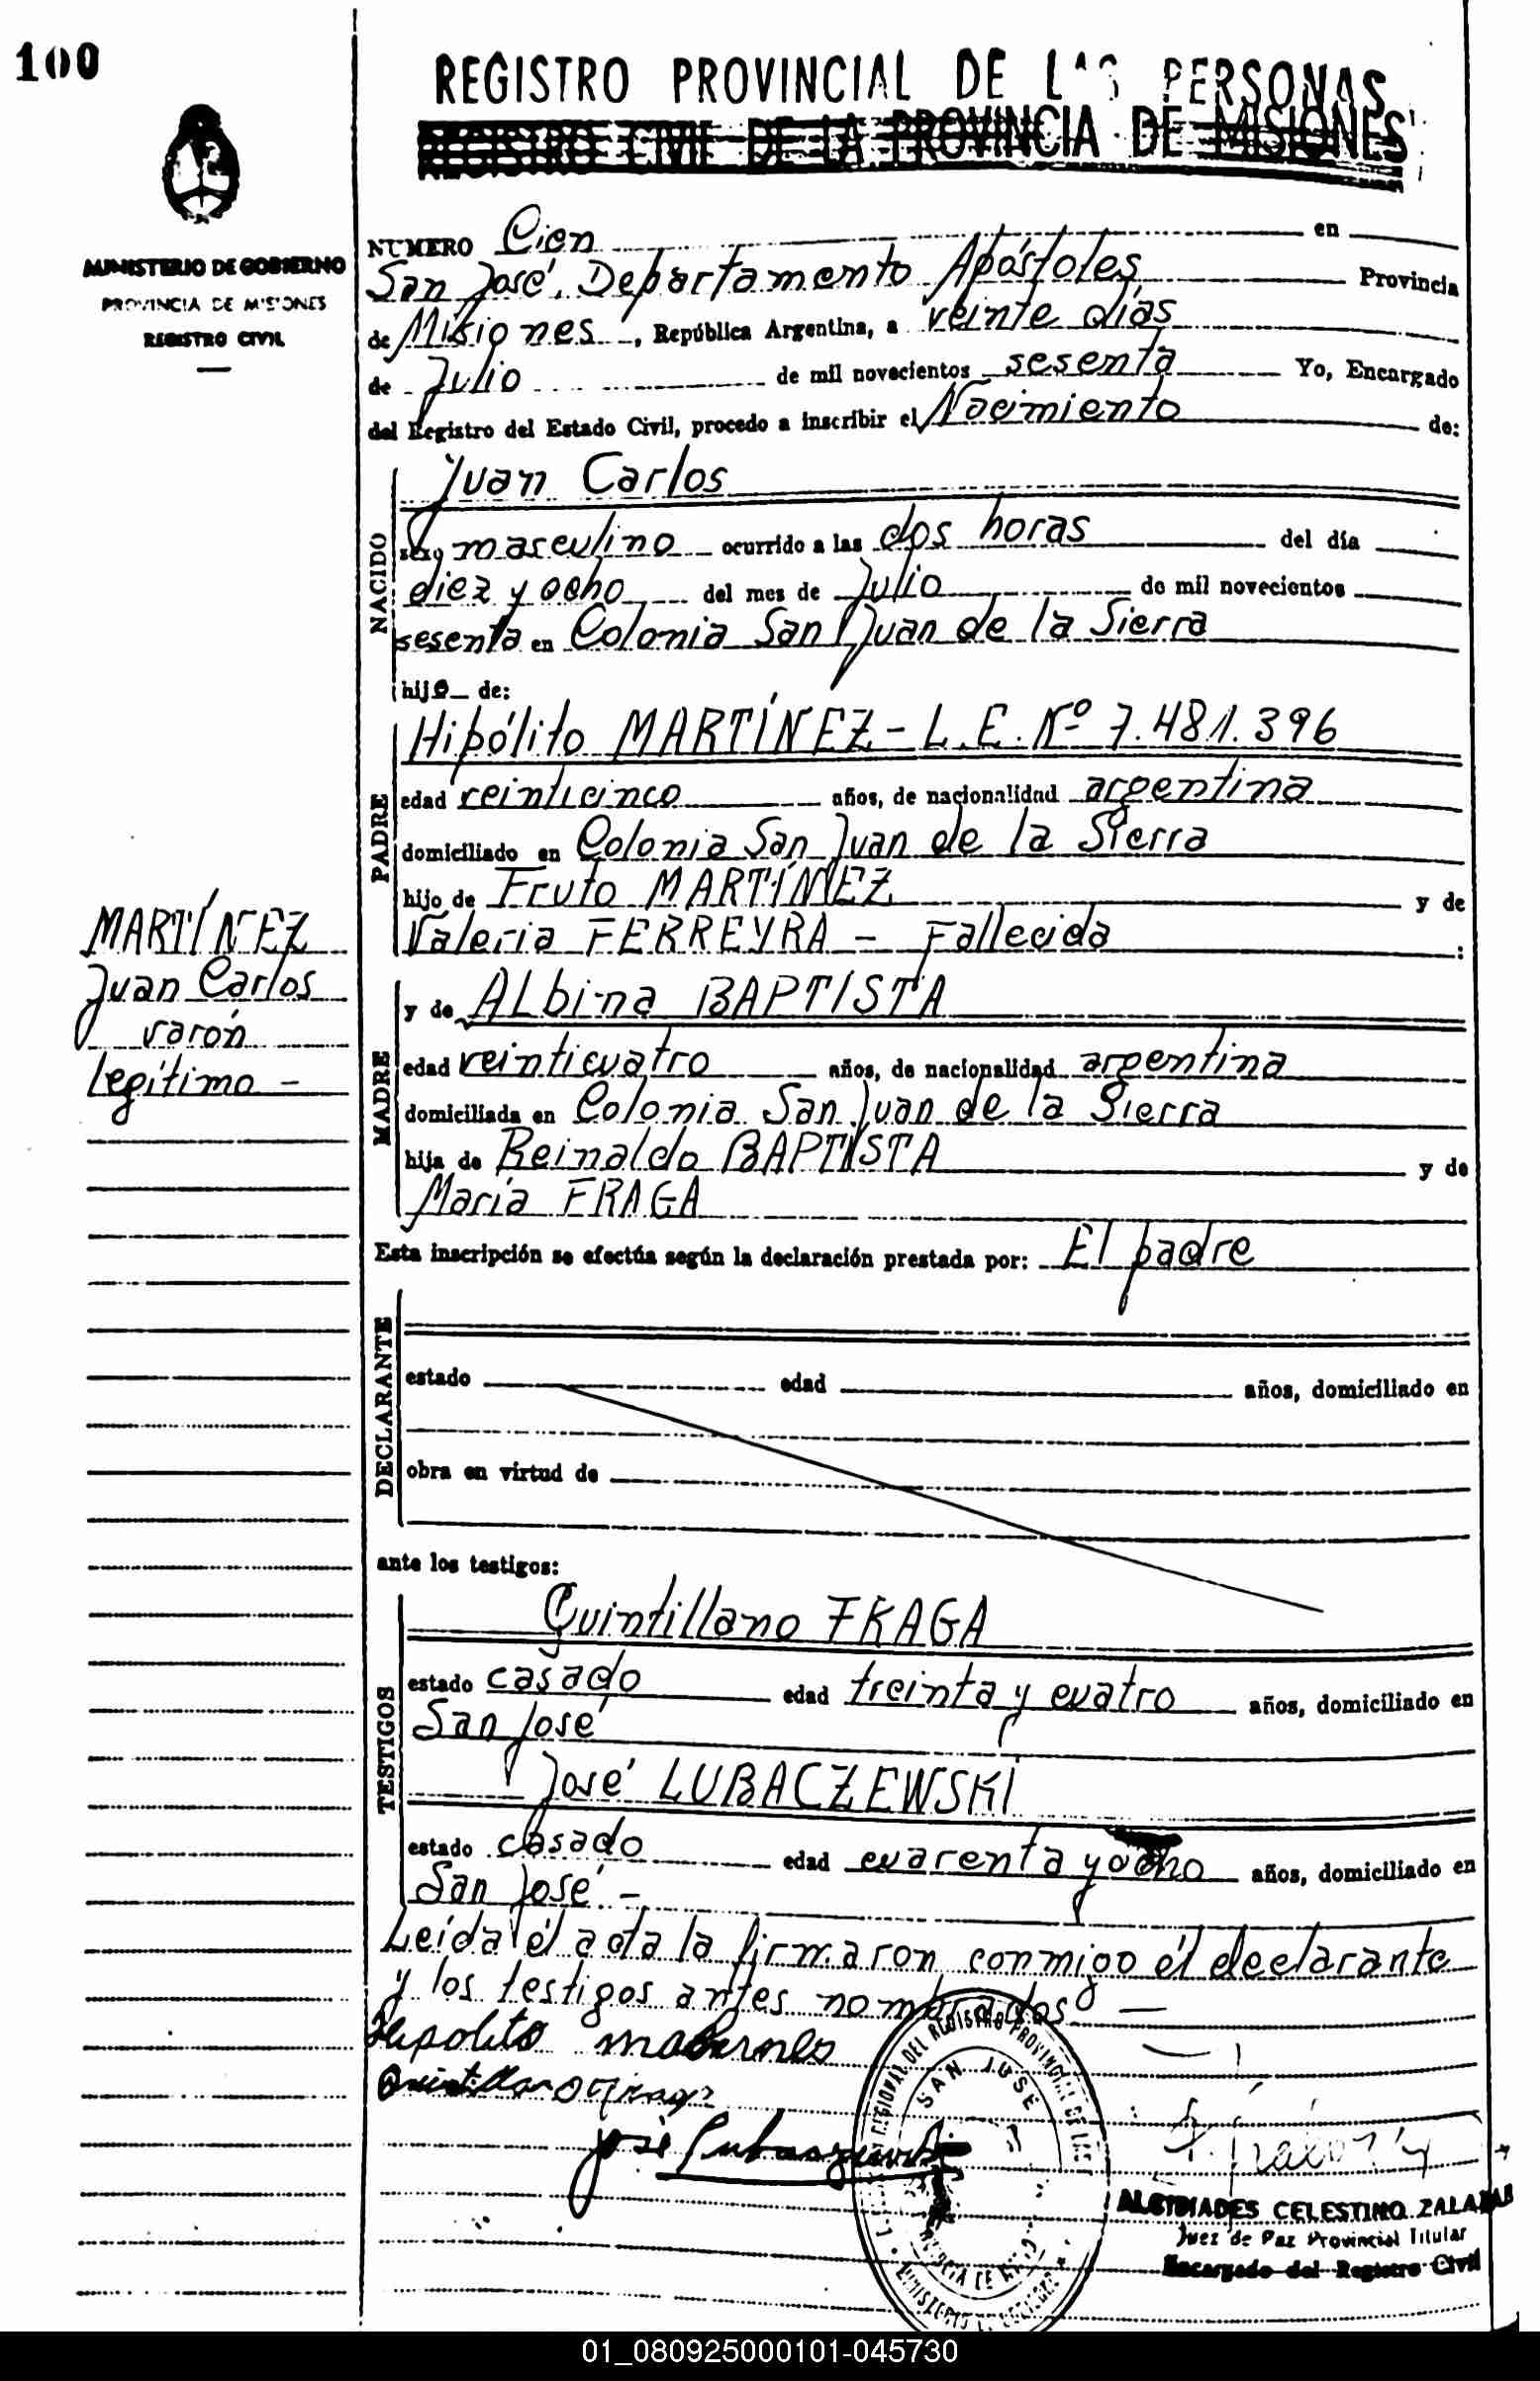 100
REGISTRO PROVINCIAL DE LAS PERSONAS
REGISTRO CIVIL DE LA PROVINCIA DE MISIONES
MINISTERIO DE GOBIERNO
PROVINCIA DE MISIONES
REGISTRO CIVIL
NUMERO Cien en
San José, Departamento Apóstoles Provincia
de Misiones, República Argentina, a veinte días
de Julio de mil novecientos sesenta Yo, Encargado
del Registro del Estado Civil, procedo a inscribir el Nacimiento de:
NACIDO
Juan Carlos
sexo masculino ocurrido a las dos horas del día
diez y ocho del mes de Julio de mil novecientos
sesenta en Colonia San Juan de la Sierra
hijo de:
PADRE
Hipólito MARTÍNEZ - L.E. Nº 7.481.396
edad veinticinco años, de nacionalidad argentina
domiciliado en Colonia San Juan de la Sierra
hijo de Fruto MARTÍNEZ y de
Valeria FERREYRA - Fallecida :
MADRE
y de Albina BAPTISTA
edad veinticuatro años, de nacionalidad argentina
domiciliada en Colonia San Juan de la Sierra
hija de Reinaldo BAPTISTA y de
María FRAGA
MARTÍNEZ
Juan Carlos
varón
Legítimo -
Esta inscripción se efectúa según la declaración prestada por: El padre
DECLARANTE
estado edad años, domiciliado en
obra en virtud de
ante los testigos:
TESTIGOS
Quintillano FRAGA
estado casado edad treinta y cuatro años, domiciliado en
San José
José LUBACZEWSKI
estado casado edad cuarenta y ocho años, domiciliado en
San José. -
Leída él acta la firmaron conmigo él declarante
y los testigos antes nombrados -
Hipolito
José
SAN JOSE
ALCIBIADES CELESTINO ZALAZAR
Juez de Paz Provincial Titular
Encargado del Registro Civil
01_080925000101-045730